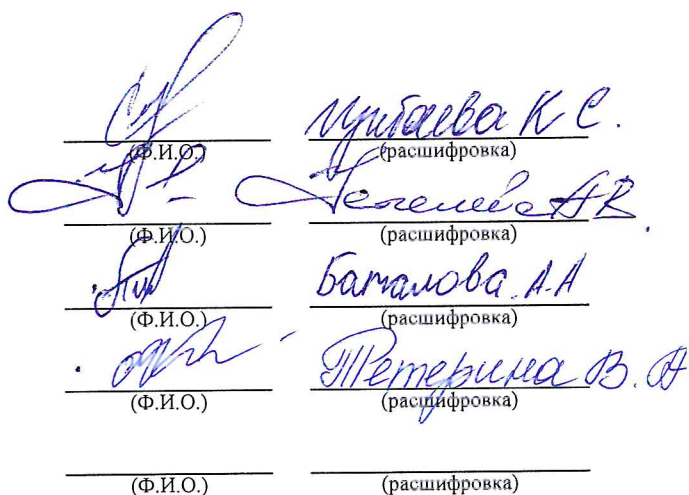 К. С.
(Ф.И.О.) (расшифровка)
А.В.
(Ф.И.О.) (расшифровка)
Баталова. А.А
(Ф.И.О.) (расшифровка)
Тетерина В. А
(Ф.И.О.) (расшифровка)
(Ф.И.О.) (расшифровка)